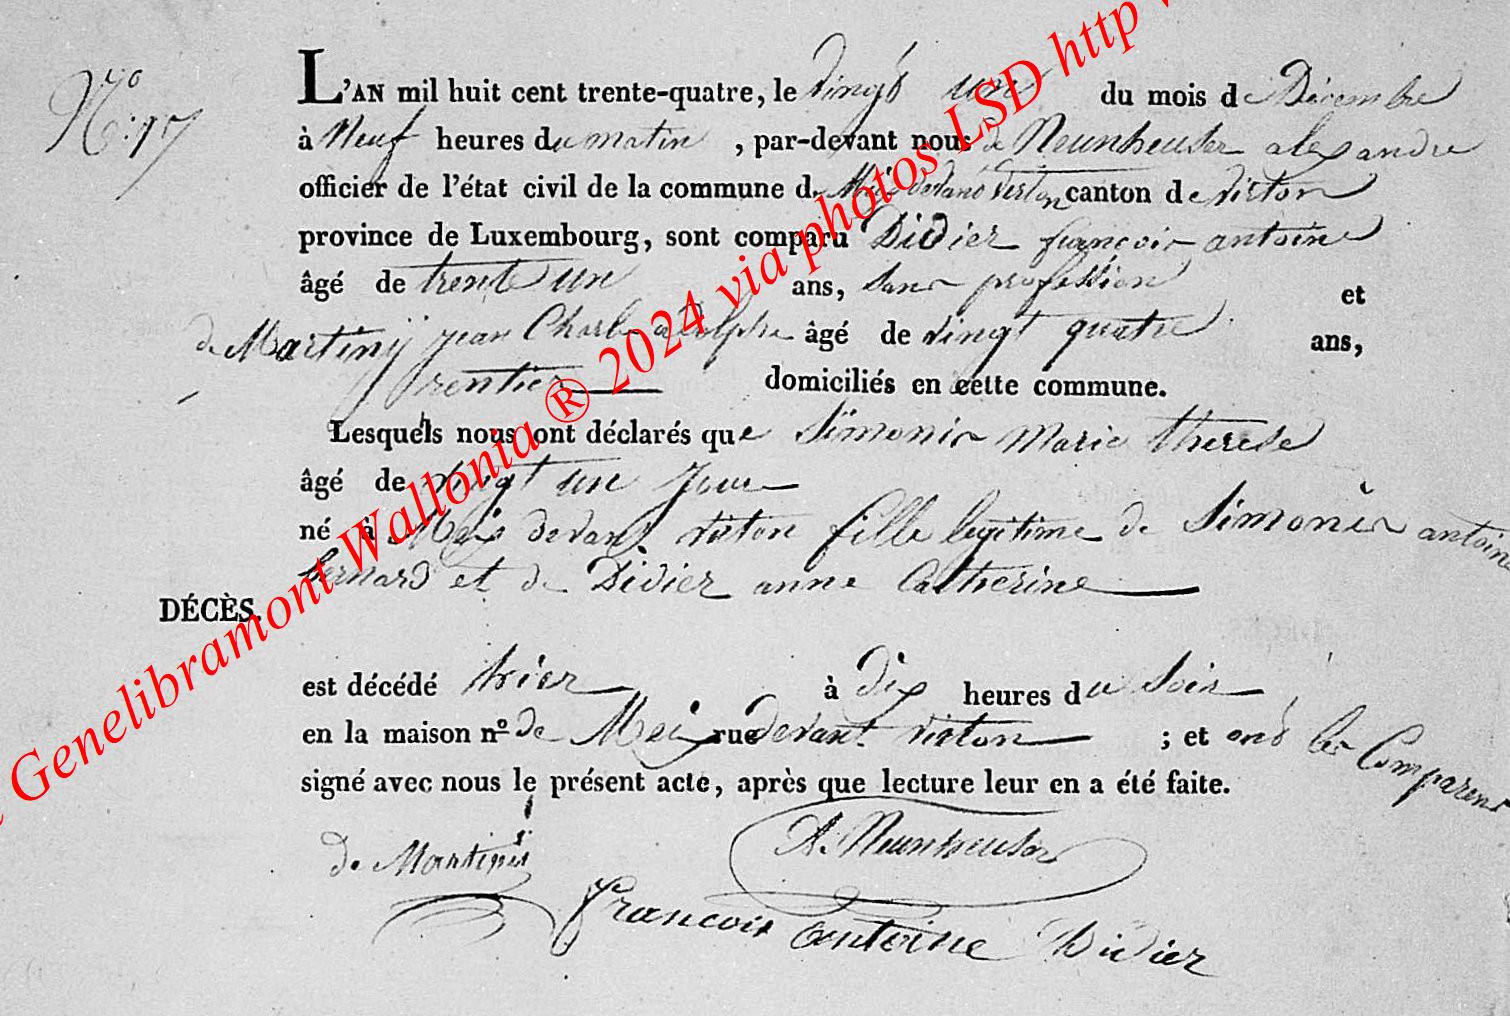 N.º 17
L'AN mil huit cent trente-quatre, le vingt un du mois de Décembre
à Neuf heures du matin, par-devant nous de Neunheuser alexandre
officier de l'état civil de la commune de Meix devant virton canton de virton
province de Luxembourg, sont comparu Didier françois antoine
âgé de trent un ans, sans profession et
de Martiny jean Charle adolphe âgé de vingt quatre ans,
rentier domiciliés en cette commune.
Lesquels nous ont déclarés que Simonis Marie therese
âgé de vingt un jour
né à Meix devant virton fille legitime de Simonis antoine
bernard et de Didier anne Catherine
DÉCÈS.
est décédé hier à dix heures du soir
en la maison nº de Meix rue devant virton ; et ont les Comparens
signé avec nous le présent acte, après que lecture leur en a été faite.
de Martiny
A. Neunheuser
francois antoine Didier
Genelibramont Wallonia ® 2024 via photos LSD http